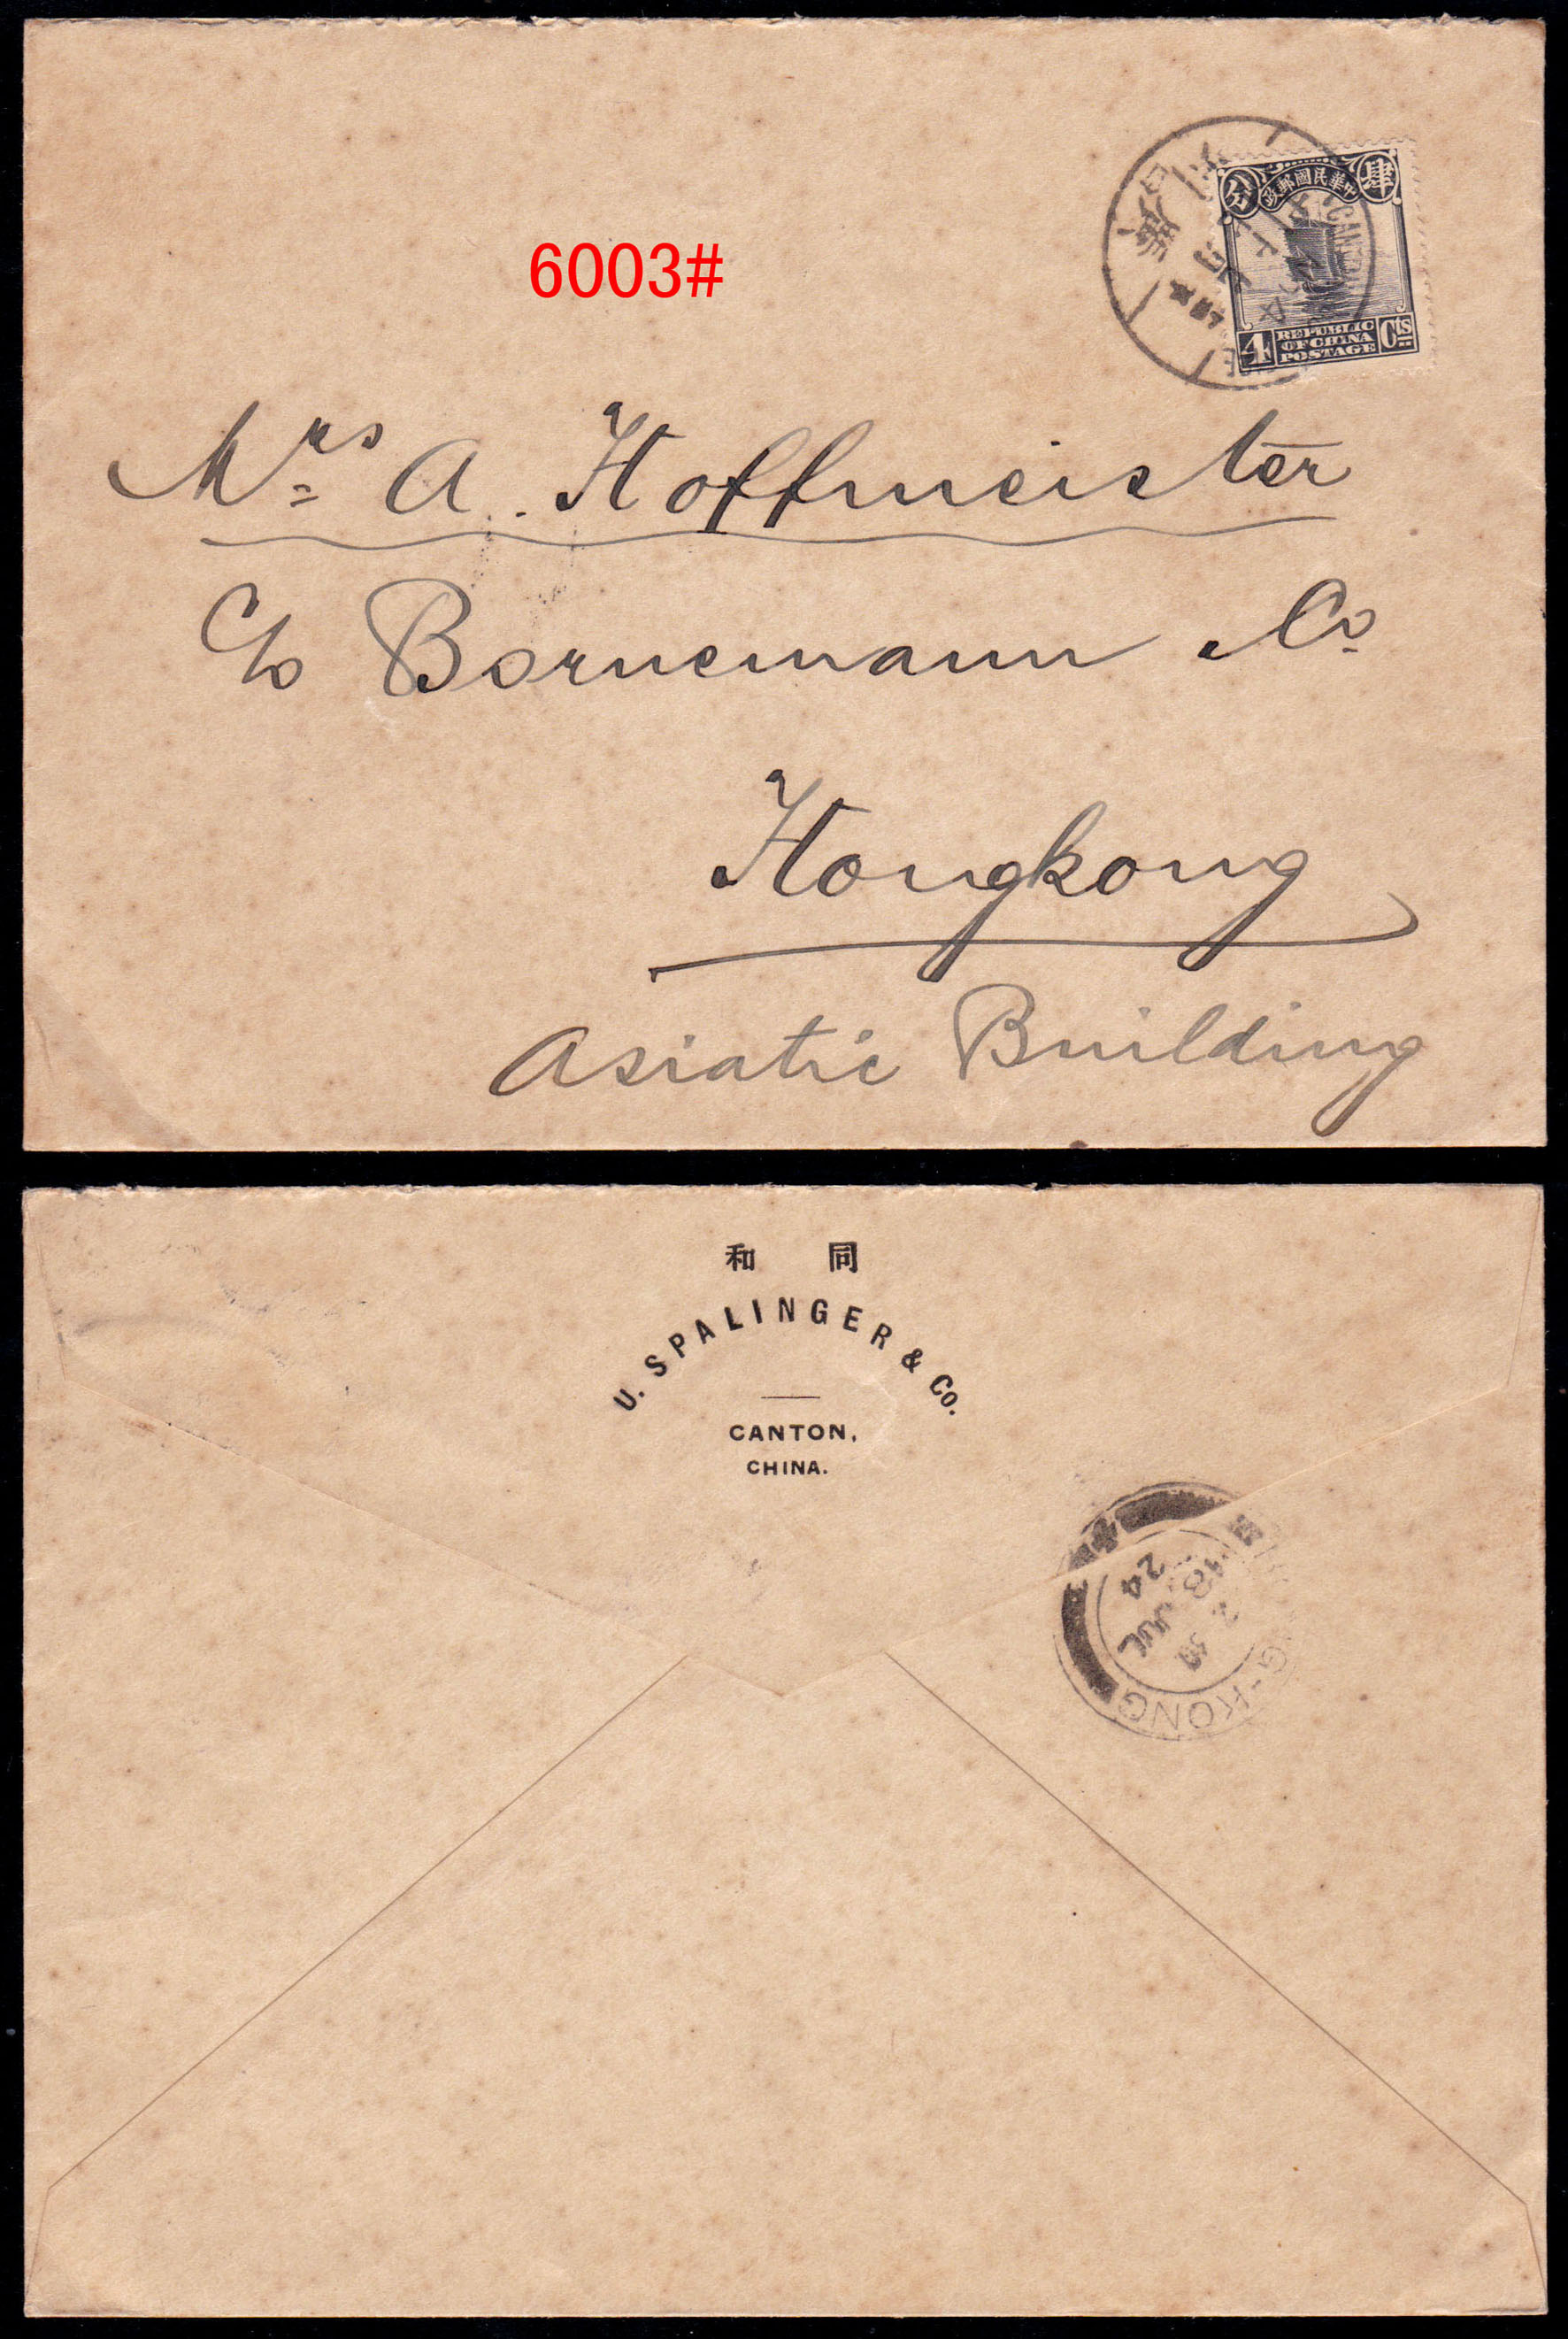 6003#
分 政郵國民華中 肆
4 REPUBLIC OF CHINA POSTAGE Cts
CANTON
Mrs A. Hoffmeister
C/o Bornemann & Co
Hongkong
Asiatic Building
和 同
U. SPALINGER & Co.
CANTON,
CHINA.
G-KONG
18 JUL
24